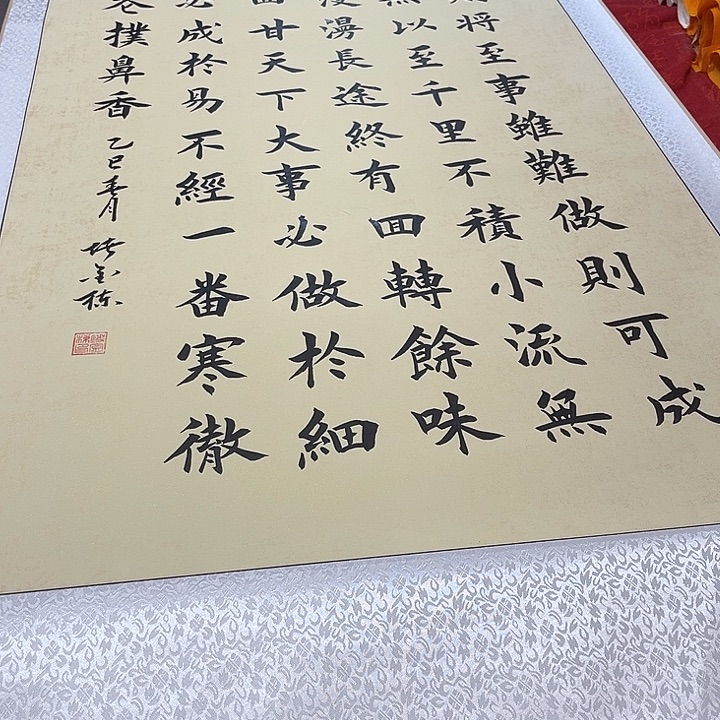 將至事雖難做則可成
無以至千里不積小流無
漫長途終有囬轉餘味
甘天下大事必做於細
必成於易不經一番寒徹
撲鼻香
乙巳